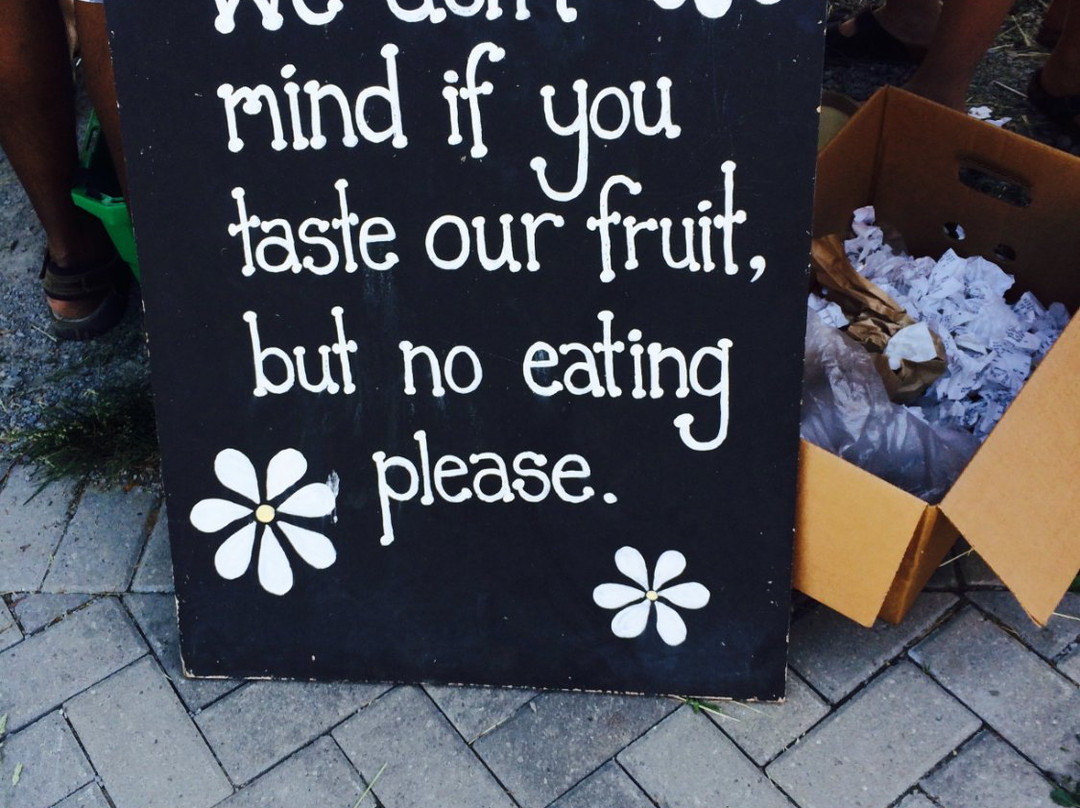 We don't
mind if you
taste our fruit,
but no eating
please.